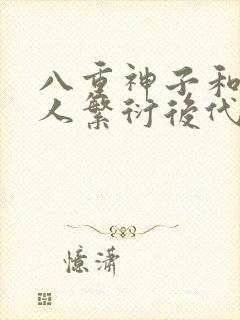 八重神子和
人繁衍後代
憶瀟